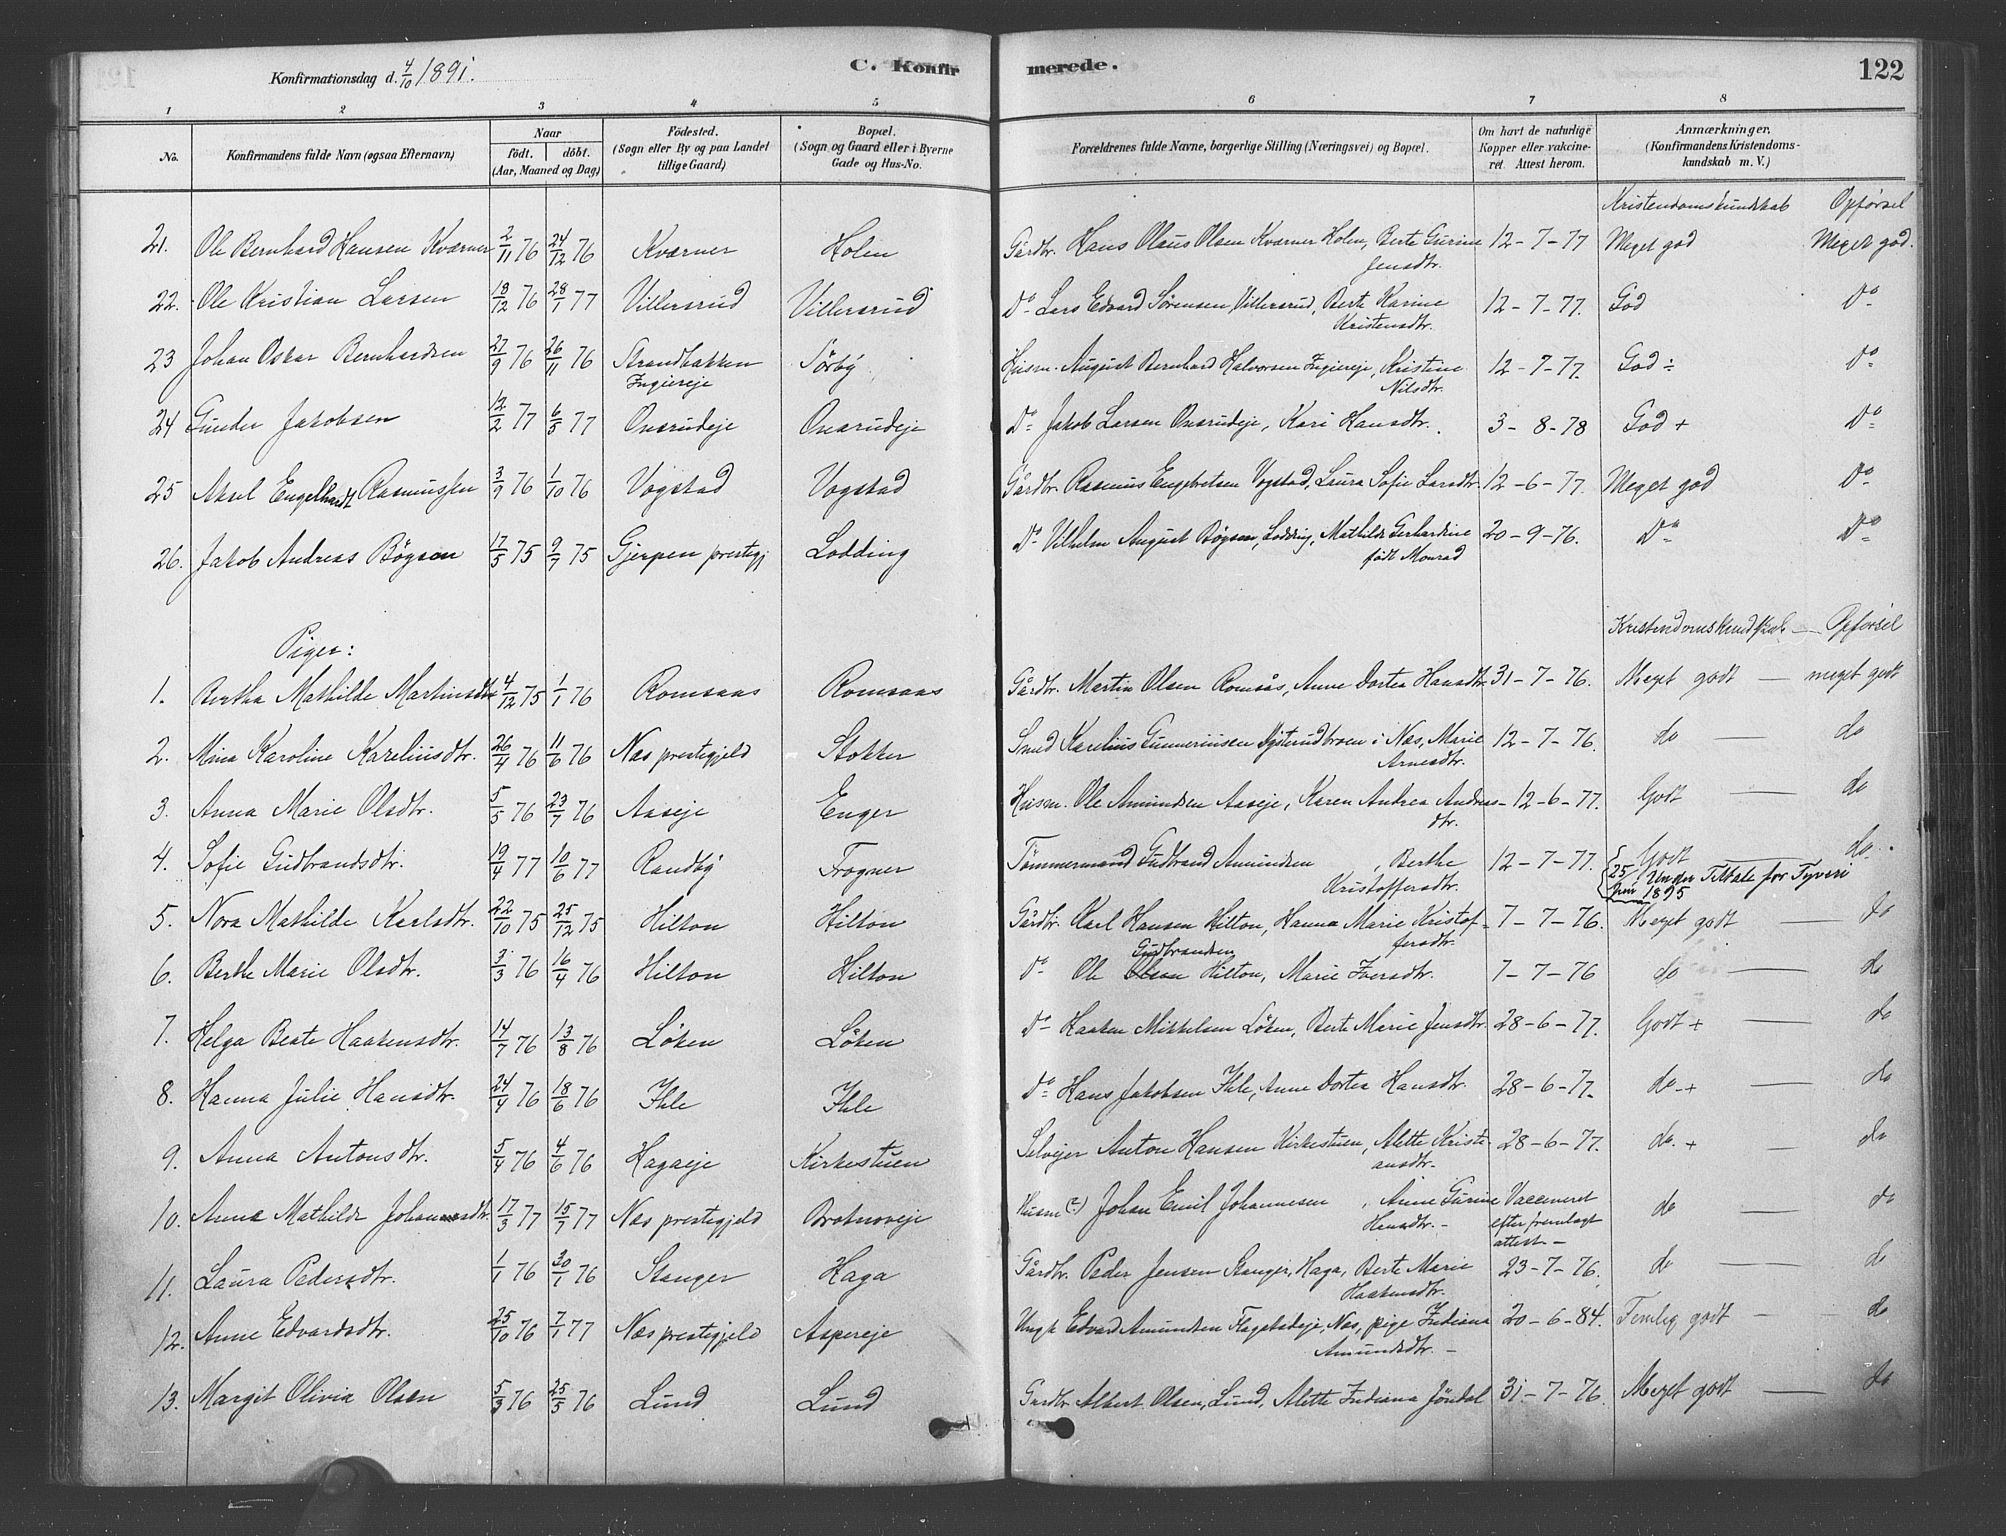 Konfirmationsdag d. 4/10 1891. C. Konfirmerede. 122
1 2 3 4 5 6 7 8
No. Konfirmandens fulde Navn (ogsaa Efternavn) Naar födt. döbt. (Aar, Maaned og Dag) Födested. (Sogn eller By og paa Landet tillige Gaard) Bopæl. (Sogn og Gaard eller i Byerne Gade og Hus-No. Forældrenes fulde Navne, borgerlige Stilling (Næringsvei) og Bopæl. Om havt de naturlige Kopper eller vakcineret. Attest herom. Anmærkninger. (Konfirmandens Kristendomskundskab m. V.)
Kristendomskundskab Opførsel
21. Ole Bernhard Hansen Kværner 2/11 76 24/12 76 Kværner Holen Gårdbr. Hans Olaus Olsen Kværner Holen, Berte Gurine Jensdtr. 12-7-77 Meget god Meget god.
22. Ole Kristian Larsen 18/12 76 28/1 77 Villersrud Villersrud Do Lars Edvard Sørensen Villersrud, Berte Karine Kristensdtr. 12-7-77. God Do
23 Johan Oskar Bernhardsen 27/9 76 26/11 76 Strandbakken Ingiereje Sørby Husm. August Bernhard Halvorsen Ingiereje, Kristine Nilsdtr. 12-7-77. God ÷ Do
24 Gunder Jakobsen 12/2 77 6/5 77 Onsrudeje Onsrudeje Do Jakob Larsen Onsrudeje, Kari Hansdtr. 3-8-78 God + Do
25 Aksel Engelhardt Rasmussen 3/9 76 1/10 76 Vogstad Vogstad Gårdbr. Rasmus Engebretsen Vogstad, Laura Sofie Larsdtr. 12-6-77. Meget god Do
26. Jakob Andreas Bögsen 17/5 75 9/7 75 Gjerpen prestegj Lodding Do Vilhelm August Bögsen, Lodding, Mathilde Gerhardine født Monrad 20-9-76. Do Do
Piger: Kristendomskundskab — Opførsel
1. Bertha Mathilde Martinsdtr. 4/12 75 1/1 76 Romsaas Romsaas Gårdbr. Martin Olsen Romsås, Anne Dortea Hansdtr. 31-7-76. Meget godt — meget godt
2. Mina Karoline Kareliusdtr. 26/4 76 11/6 76 Nas prestegjeld Stokker Smed Karelius Gunneriusen Dysterudbroen i Nas, Marie Arnesdtr. 12-7-76. do — do
3. Anna Marie Olsdtr. 5/5 76 23/7 76 Aaseje Enger Husm. Ole Amundsen Aaseje, Karen Andrea Andreasdtr. 12-6-77. Godt — do
4. Sofie Gudbrandsdtr. 19/4 77 10/6 77 Randby Frogner Tömmermand Gudbrand Amundsen, Berthe Kristoffersdtr. 12-7-77. Godt do.
25 Juni 1895 Under Tiltale for Tyveri
5. Nora Mathilde Karlsdtr. 22/10 75 25/12 75 Hilton Hilton Gårdbr. Karl Hansen Hilton, Hanna Marie Kristoffersdtr. 7-7-76. Meget godt — do
6. Berthe Marie Olsdtr. 3/3 76 16/4 76 Hilton Hilton Do Ole Gudbrandsen Hilton, Marie Iversdtr. 7-7-76 do — do
7. Helga Beate Haakensdtr. 14/7 76 13/8 76 Löken Löken Do Haaken Mikkelsen Löken, Berte Marie Jensdtr. 28-6-77. Godt + — do
8. Hanna Julie Hansdtr. 24/4 76 18/6 76 Ihle Ihle Do Hans Jakobsen Ihle, Anne Dortea Hansdtr. 28-6-77. do + — do
9. Anna Antonsdtr. 5/4 76 4/6 76 Hagaeje Kirkestuen Selvejer Anton Hansen Kirkestuen, Alette Kristiansdtr. 28-6-77. do. + — do
10. Anna Mathilde Johannesdtr. 17/3 77 15/7 77 Nas prestegjeld Brotnoveje Husm (?) Johan Emil Johannesen, Anne Gurine Hansdtr. Vaccineret efter fremlagt attest. do — do
11. Laura Pedersdtr. 1/1 76 30/1 76 Stanger Haga Gårdbr. Peder Jensen Stanger, Haga, Berte Marie Haakensdtr. 23-7-76. do — do
12. Anne Edvardsdtr. 25/10 76 7/1 77 Nas prestegjeld Aspereje Ungk Edvard Amundsen Flagstadeje, Nas, pige Indiana Amundsdtr. 20-6-84. Temlig godt — do
13. Margit Olivia Olsen 5/3 76 25/5 76 Lund Lund Gardbr Albert Olsen, Lund, Alette Indiana Jöndal 31-7-76. Meget godt — do